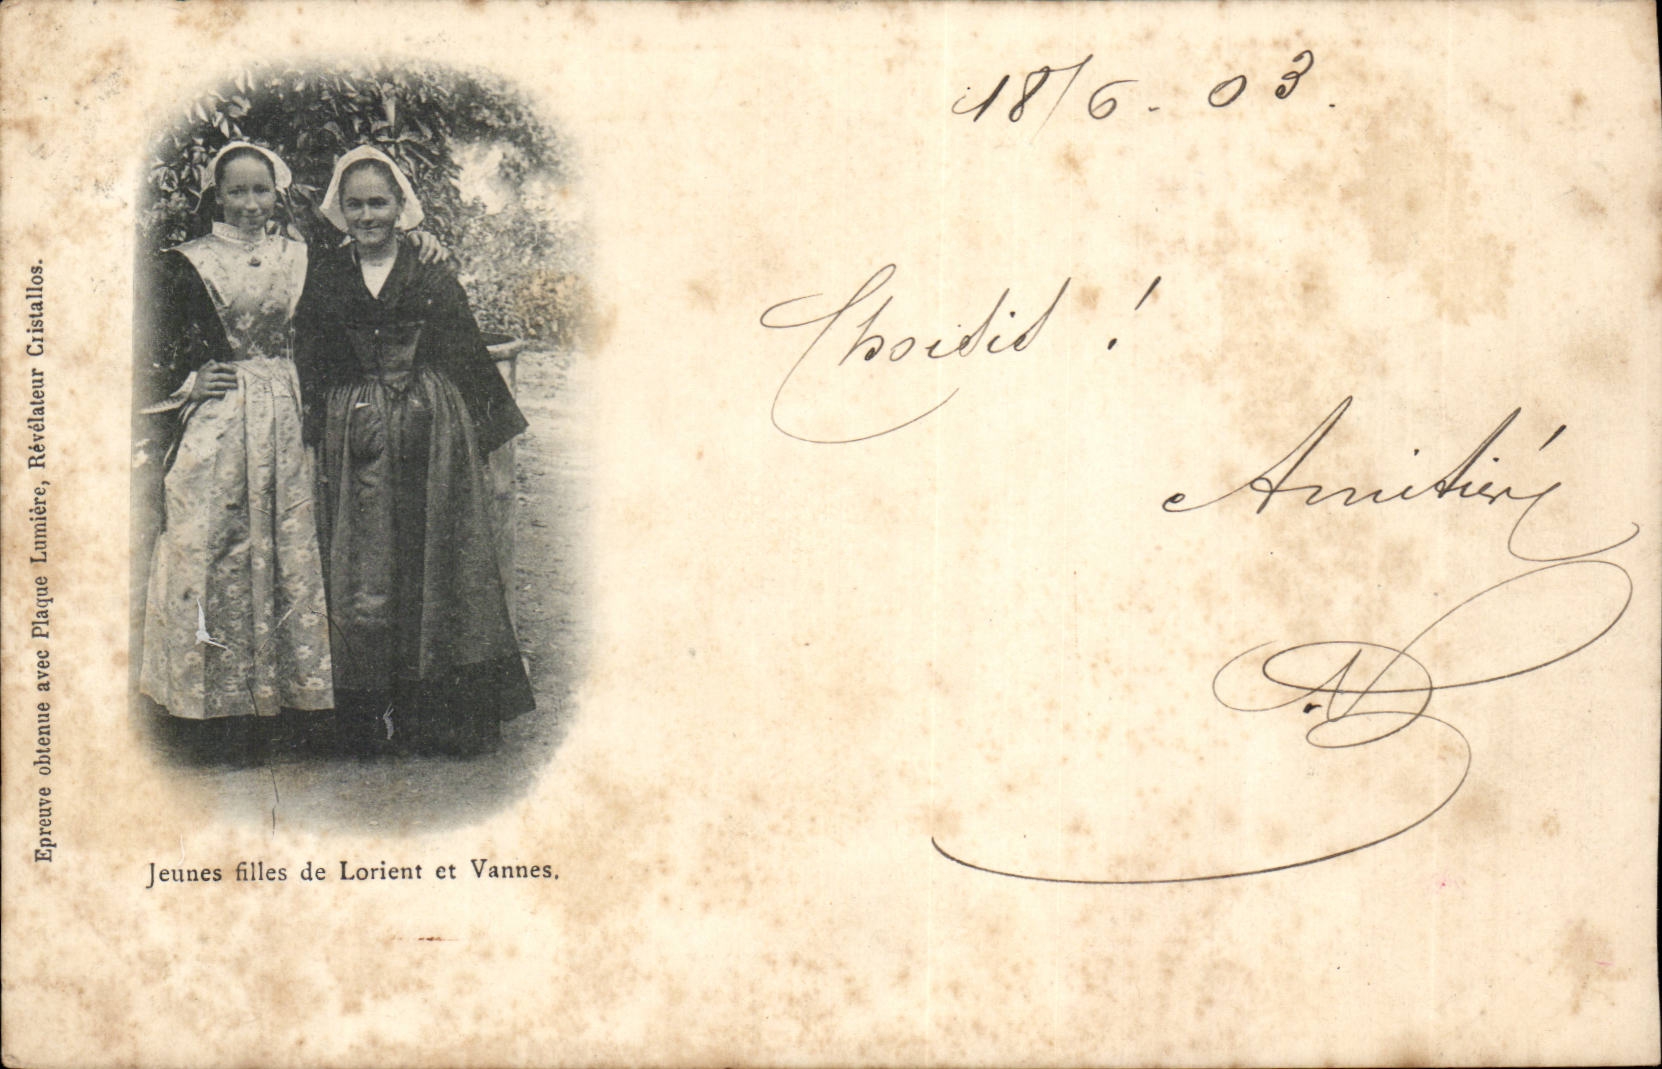 18/6 - 03.
Choisis !
Amitiés
Epreuve obtenue avec Plaque Lumière, Révélateur Cristallos.
Jeunes filles de Lorient et Vannes.